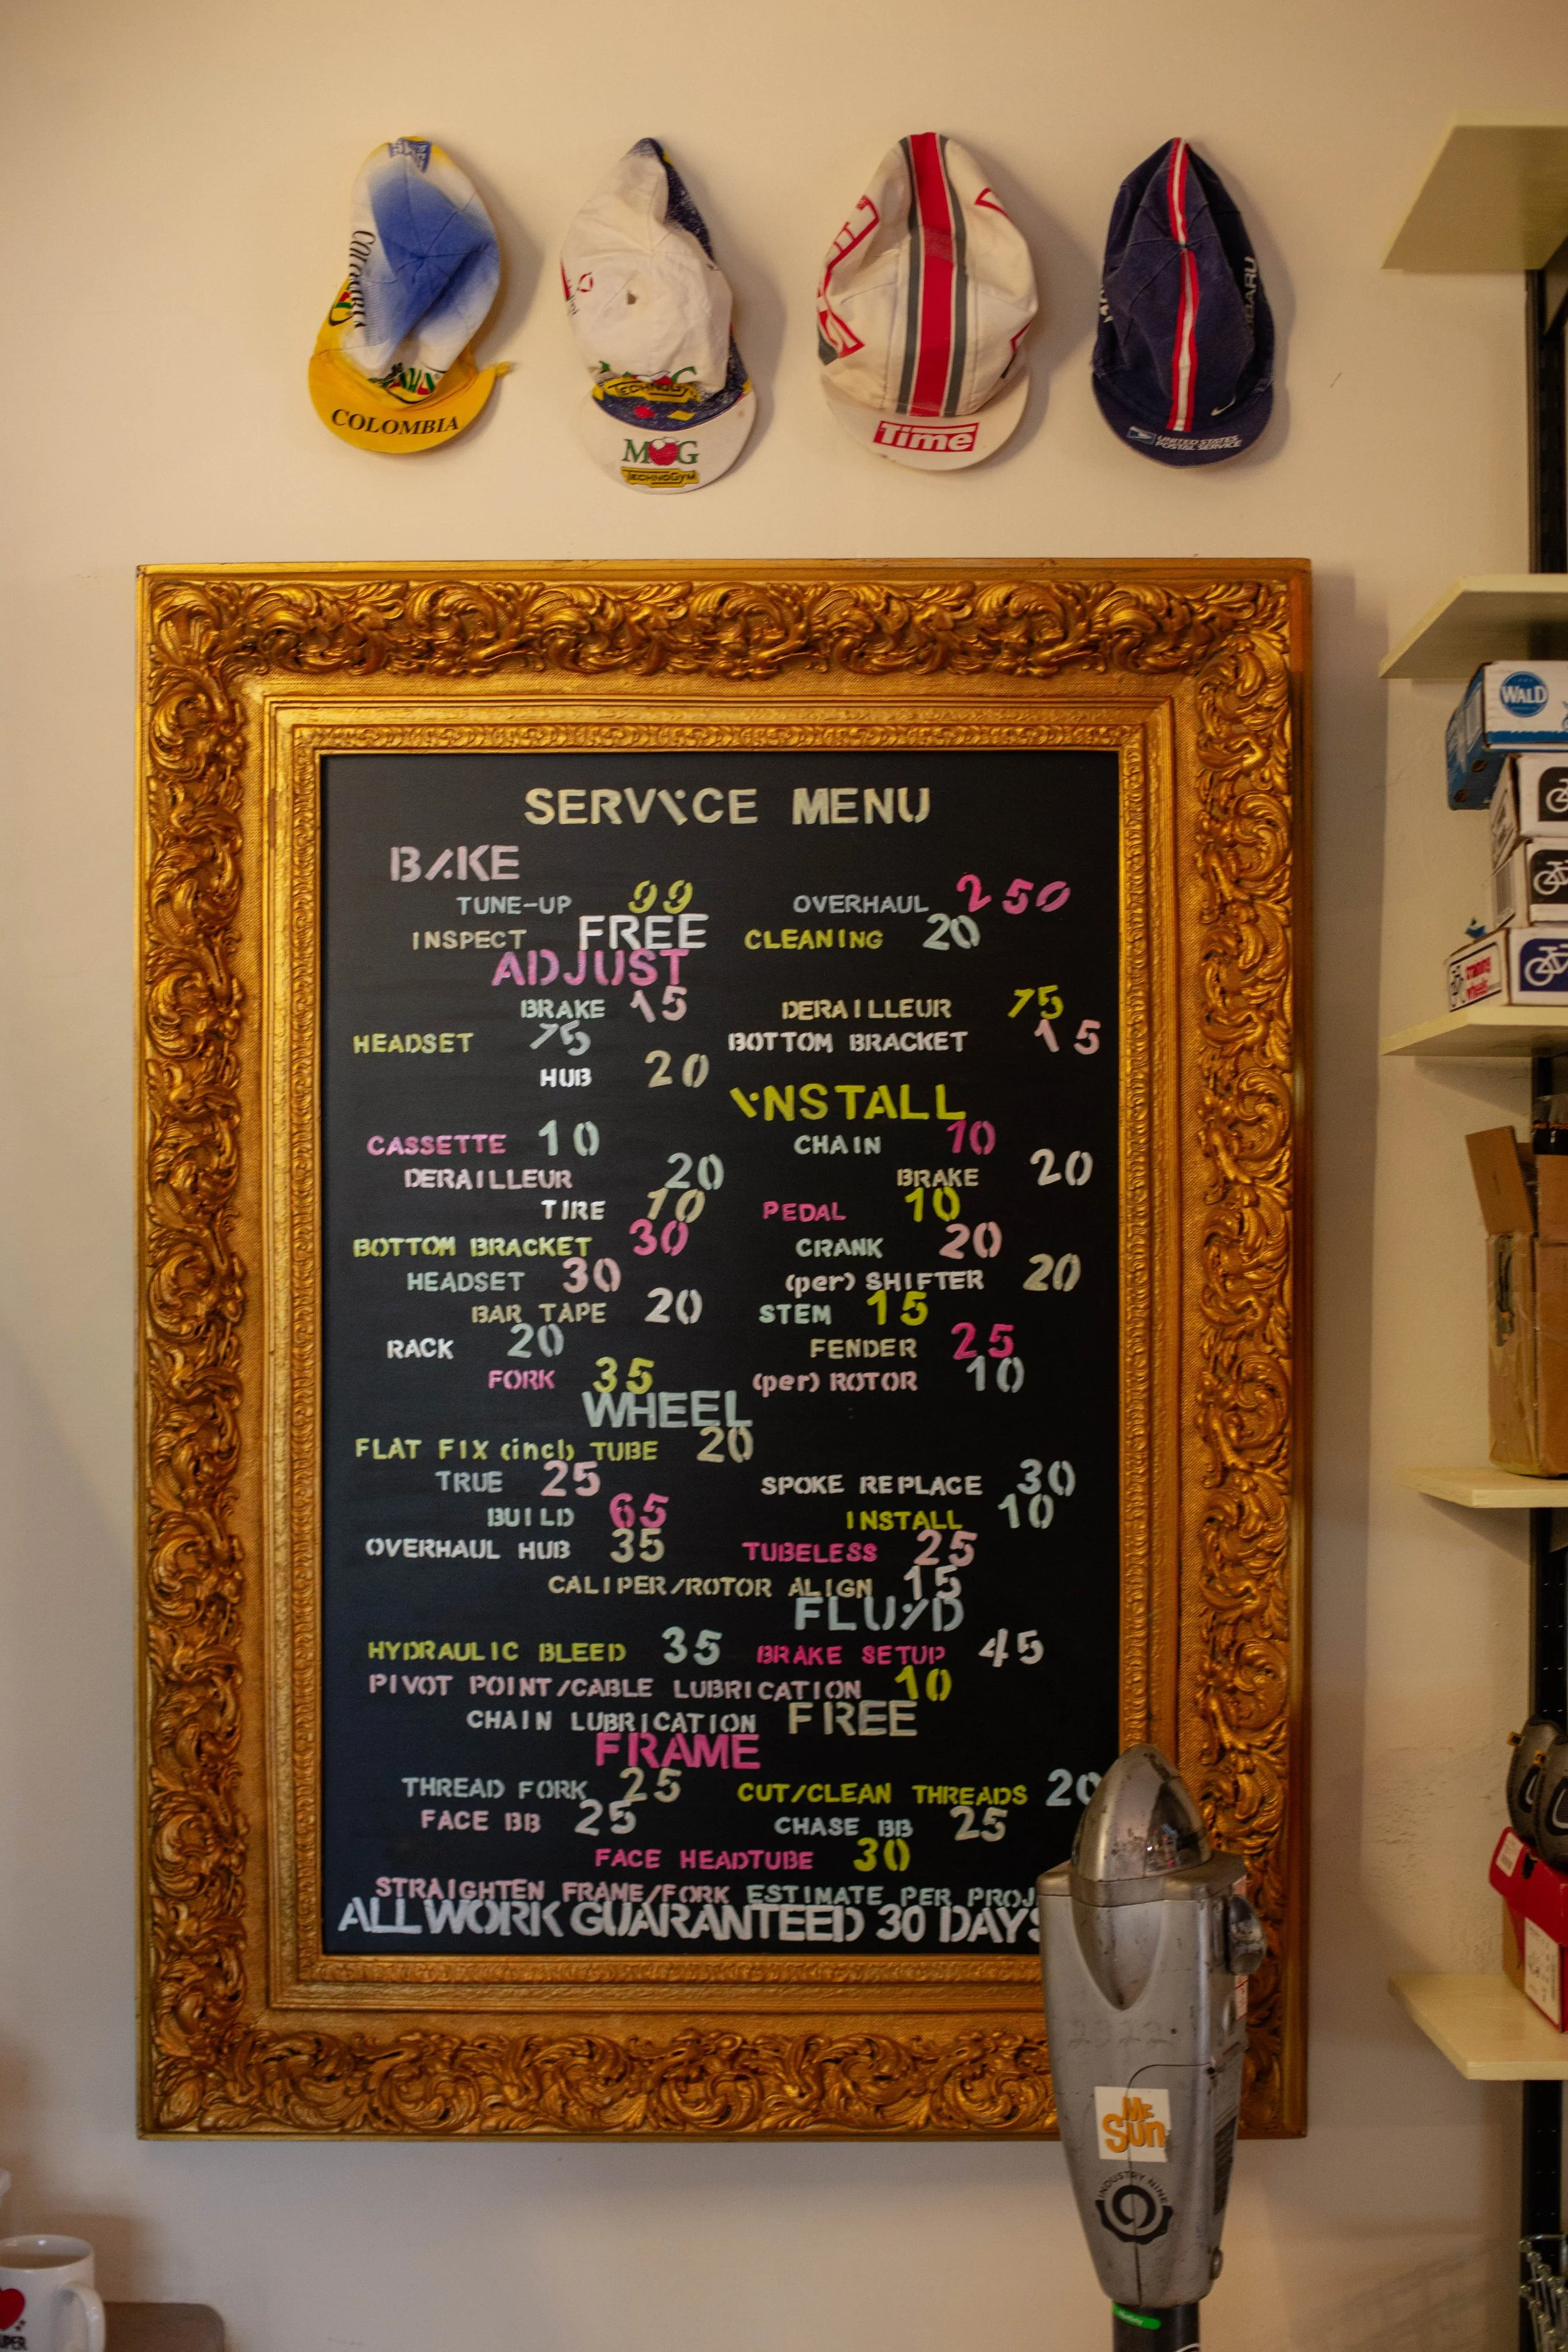 COLOMBIA
COLOMBIA
TECHNOGYM
MG
TECHNOGYM
Time
UNITED STATES
POSTAL SERVICE
WALD
SERVICE MENU
BIKE
TUNE-UP 99 OVERHAUL 250
INSPECT FREE CLEANING 20
ADJUST
BRAKE 15 DERAILLEUR 15
HEADSET 15 BOTTOM BRACKET 15
HUB 20
INSTALL
CASSETTE 10 CHAIN 10
DERAILLEUR 20 BRAKE 20
TIRE 10 PEDAL 10
BOTTOM BRACKET 30 CRANK 20
HEADSET 30 (per) SHIFTER 20
BAR TAPE 20 STEM 15
RACK 20 FENDER 25
FORK 35 (per) ROTOR 10
WHEEL
FLAT FIX (incl) TUBE 20
TRUE 25 SPOKE REPLACE 30
BUILD 65 INSTALL 10
OVERHAUL HUB 35 TUBELESS 25
CALIPER/ROTOR ALIGN 15
FLUID
HYDRAULIC BLEED 35 BRAKE SETUP 45
PIVOT POINT/CABLE LUBRICATION 10
CHAIN LUBRICATION FREE
FRAME
THREAD FORK 25 CUT/CLEAN THREADS 20
FACE BB 25 CHASE BB 25
FACE HEADTUBE 30
STRAIGHTEN FRAME/FORK ESTIMATE PER PROJ
ALL WORK GUARANTEED 30 DAYS
ME
SUN
INDUSTRY NINE